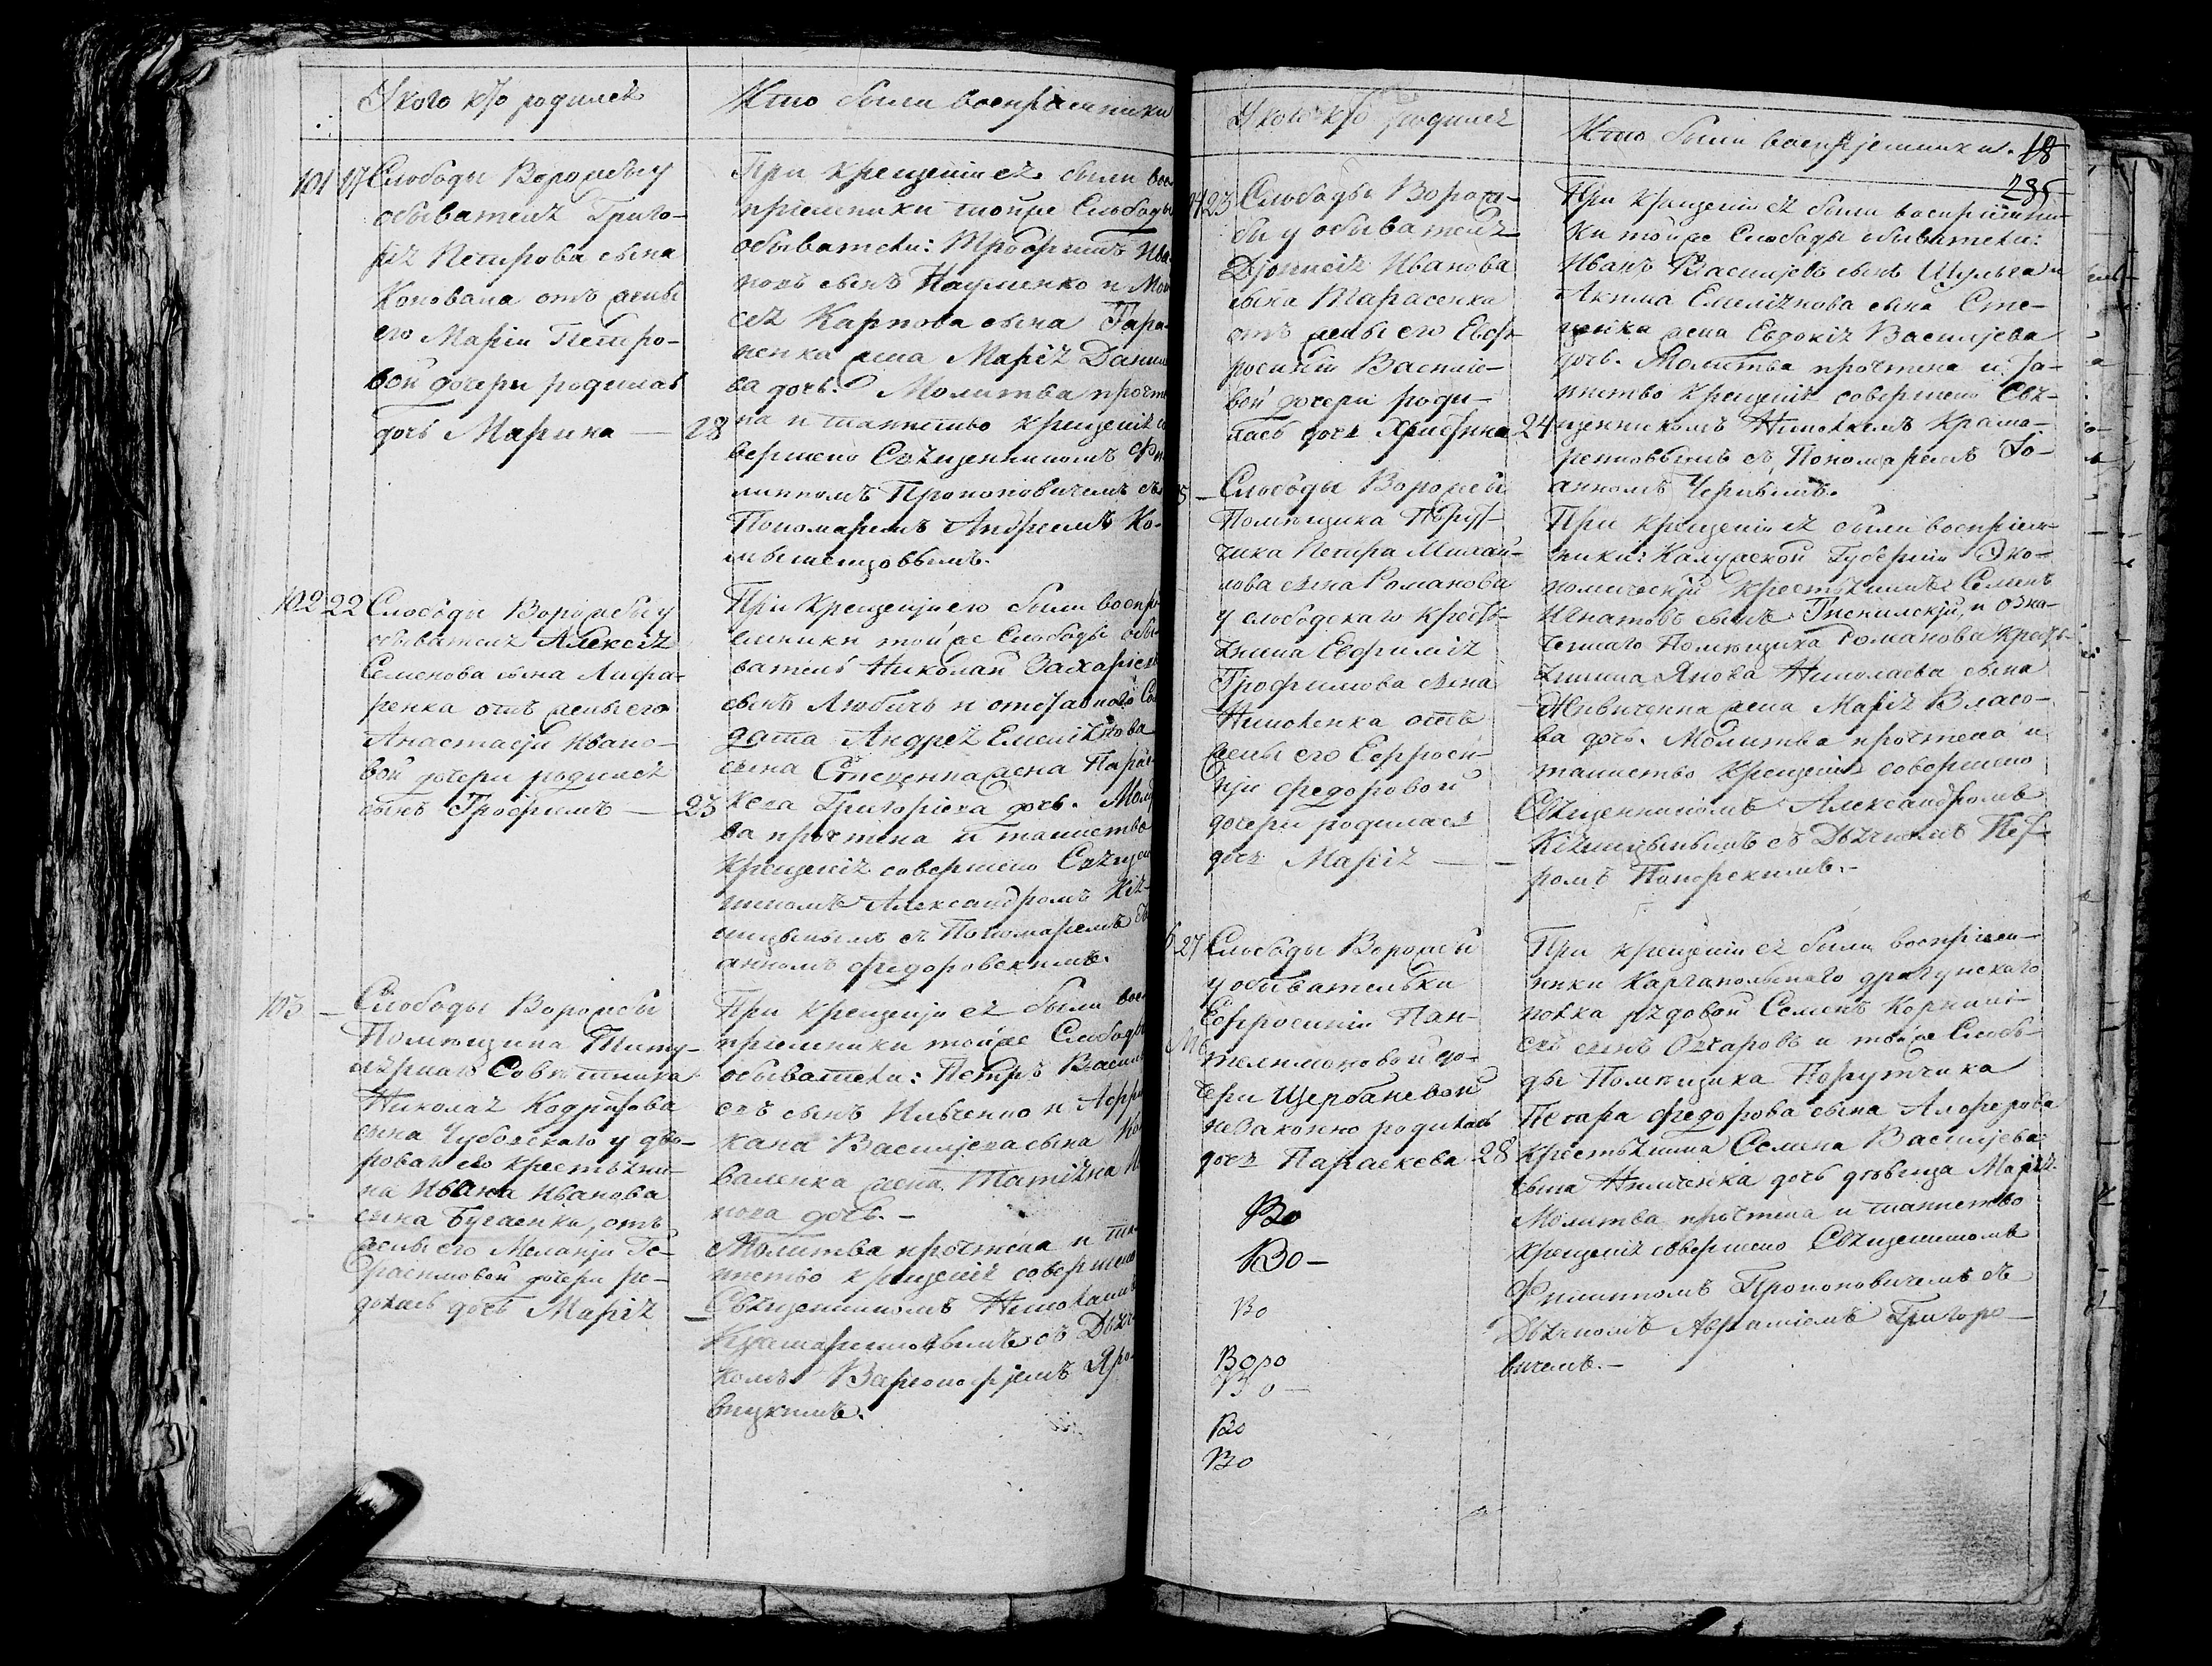 У кого кто родился
Кто были воспріемники
101 17 Слободы Ворожбы у
обывателя Григо-
рія Петрова сына
Коновала отъ жены
его Маріи Петро-
вой дочери родилась
дочь Марина — 18
При крещеніи ея были вос
пріемники тойже Слободы
обыватели: Трофимъ Ива
новъ сынъ Науменко и Мои
сея Карпова сына Гара-
женка жена Марія Данил
ва дочь. Молитва прочте
на и таинство крещенія со
вершено Священникомъ Фи
липпомъ Прокоповичемъ съ
Пономаремъ Андреемъ
102 22 Слободы Ворожбы у
обывателя Алексія
Семенова сына Лифа-
ренка отъ жены его
Анастасіи Ивано-
вой дочери родился
сынъ Трофимъ — 23
При крещеніи его были воспрі
емники тойже Слободы обы
ватель Николай Захаріевъ
сынъ Любичь и отставного Сол
дата Андрея Емеліянова
сына жена Парас
кева Григоріева дочь. Молит
ва прочтена и таинство
крещенія совершено Священ
никомъ Александромъ Кія-
ницынымъ съ Пономаремъ Іо
анномъ Федоровскимъ.
103 — Слободы Ворожбы
Помѣщика Титу-
лярнаго Совѣтника
Николая
сына у дво-
роваго его крестьяни-
на Ивана Иванова
сына Бугаенка, отъ
жены его Меланіи Ге-
расимовой дочери ро-
дилась дочь Марія —
При крещеніи ея были вос
пріемники тойже Слободы
обыватели: Петръ Василь
евъ сынъ Ильченко и Афри
кана Васильева сына Ко
валенка жена Татіяна
нова дочь. —
Молитва прочтена и таи-
нство крещенія совершено
Священникомъ Николаемъ
Крамаренковымъ съ Дьяч
комъ Варѳоломѣемъ Яро-
вицкимъ.
У кого кто родился
Кто были воспріемники. 18
235
104 23 Слободы Ворож-
бы у обывателя
Діонисія Иванова
сына Тарасенка
отъ жены его Евф-
росиніи Василіе-
вой дочери роди-
лась дочь Христина 24
При крещеніи ея были воспріемни-
ки тойже Слободы обыватели:
Иванъ Василіевъ сынъ Шульга и
Акима Емеліянова сына Сте-
ценка жена Евдокія Василіева
дочь. Молитва прочтена и та-
инство крещенія совершено Свя-
щенникомъ Николаемъ Крама-
ренковымъ съ Пономаремъ Іо-
анномъ Чернымъ.
5 — Слободы Ворожбы
Помѣщика Порут-
чика Петра Михай-
лова сына Романова
у слободскаго кресть-
янина Евфимія
Трофимова сына
Николенка отъ
жены его Евфроси-
ніи Федоровой
дочери родилась
дочь Марія — —
При крещеніи ея были воспріем-
ники: Калужской Губерніи Эко-
номическій крестьянинъ Семенъ
Игнатовъ сынъ и озна-
ченнаго Помѣщика Романова кресть-
янина Якова Николаева сына
жена Марія Власо-
ва дочь. Молитва прочтена и
таинство крещенія совершено
Священникомъ Александромъ
Кіяницынымъ съ Дьячкомъ Пет-
ромъ Попорскимъ. —
6 27 Слободы Ворожбы
у обывательки
Евфросиніи Пан-
телимоновой до-
чери Щербаневой
незаконно родилась
дочь Параскева 28
При крещеніи ея были воспріем-
ники Каргапольскаго драгунскаго
полка рядовой Семенъ Корниліе-
евъ сынъ Овчаровъ и тойже Слобо-
ды Помѣщика Порутчика
Петра Федорова сына Алферова
крестьянина Семена Василіева
сына дочь дѣвица Марія.
Молитва прочтена и таинство
крещенія совершено Священникомъ
Филиппомъ Прокоповичемъ съ
Дьячкомъ Григоро-
вичемъ. —
Во
Во —
Во
Воро
Во —
Во
Во